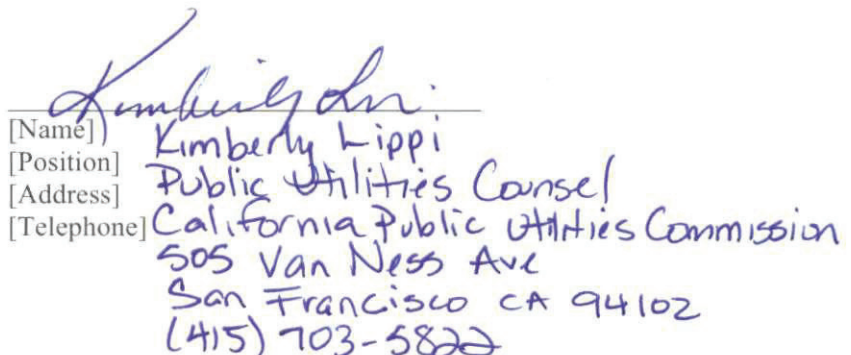 Kimberly Li
[Name] Kimberly Lippi
[Position] Public Utilities Counsel
[Address] California Public Utilities Commission
[Telephone] 505 Van Ness Ave
San Francisco CA 94102
(415) 703-5822